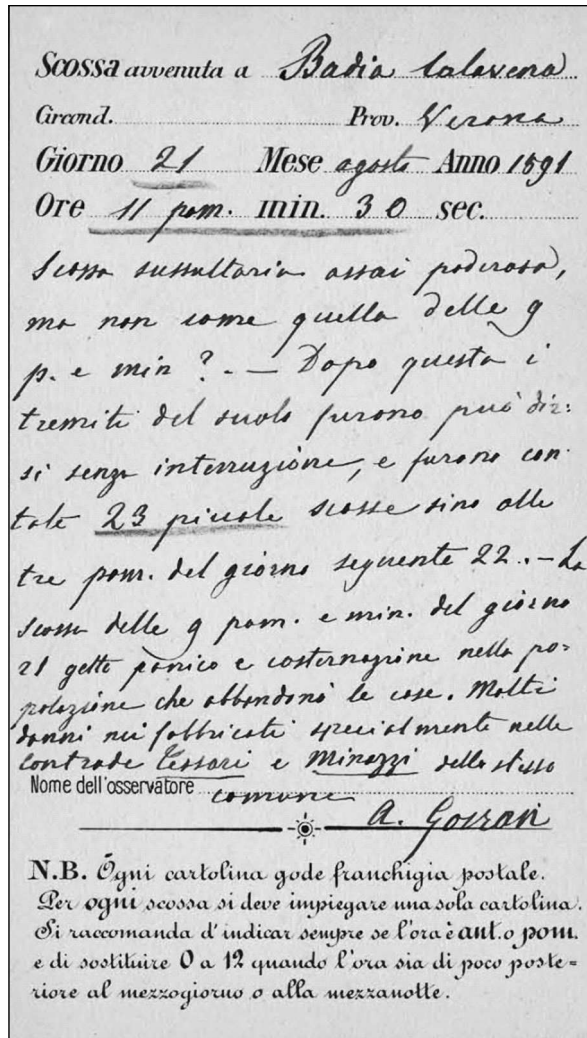 Scossa avvenuta a Badia Calavena
Circond. Prov. Verona
Giorno 21 Mese agosto Anno 1891
Ore 11 pom. min. 30 sec.
Scossa sussultoria assai poderosa,
ma non come quella delle 9
p. e min ? . — Dopo questa i
tremiti del suolo furono può dir=
si senza interruzione, e furono con
tate 23 piccole scosse sino alle
tre pom. del giorno seguente 22. . — La
scossa delle 9 pom. e min. del giorno
21 gettò panico e costernazione nella po=
polazione che abbandonò le case. Molti
danni nei fabbricati specialmente nelle
contrade Tessari e Minazzi dello stesso
Nome dell'osservatore comune
A. Goiran
N.B. Ogni cartolina gode franchigia postale.
Per ogni scossa si deve impiegare una sola cartolina.
Si raccomanda d'indicar sempre se l'ora è ant. o pom.
e di sostituire 0 a 12 quando l'ora sia di poco poste=
riore al mezzogiorno o alla mezzanotte.